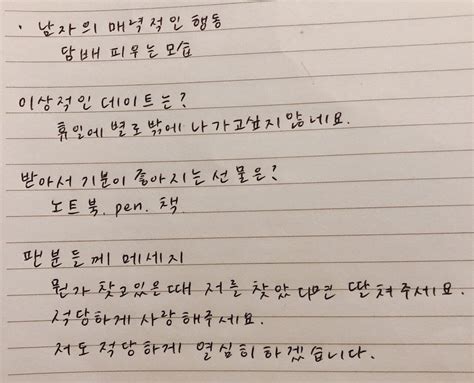 · 남자의 매력적인 행동
담배 피우는 모습
이상적인 데이트는?
휴일에 별로 밖에 나가고싶지 않네요.
받아서 기분이 좋아지는 선물은?
노트북. pen. 책
팬분들께 메세지
뭔가 찾고있은때 저를 찾았다면 딸쳐주세요.
적당하게 사랑해주세요.
저도 적당하게 열심히하겠습니다.